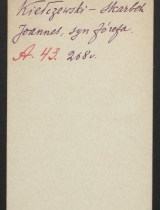 Kiełczewski - Skarbek
Joannes, syn Józefa.
A. 43. 268v.